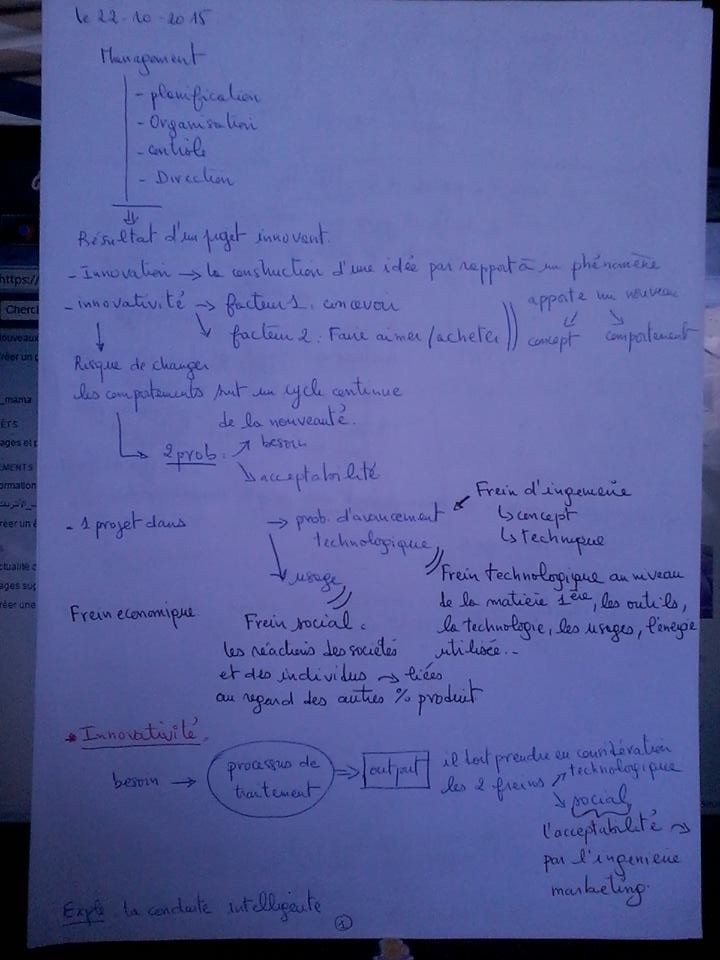 le 22-10-2015
Management
- planification
- Organisation
- contrôle
- Direction
Résultat d'un projet innovant.
- Innovation → la construction d'une idée par rapport à un phénomène
- innovativité → facteur 1 : concevoir
facteur 2 : Faire aimer / acheter
apporte un nouveau
concept comportement
Risque de changer
les comportements suit un cycle continue
de la nouveauté.
2 prob : besoin
acceptabilité
- 1 projet dans → prob. d'avancement
technologique
usage
Frein d'ingenerie
↳ concept
↳ technique
Frein technologique au niveau
de la matière 1ère, les outils,
la technologie, les usages, l'énergie
utilisée..
Frein economique
Frein social :
les réactions des sociétés
et des individus → liées
au regard des autres % produit
* Innovativité.
besoin → processus de
traitement ⇒ output
il faut prendre en considération
les 2 freins technologique
social
l'acceptabilité
par l'ingenierie
marketing.
Exple : la conduite intelligente
1
https://
Cherch
_mama